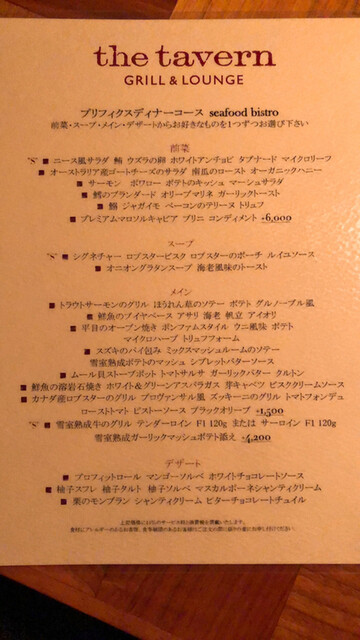 the tavern
GRILL & LOUNGE
プリフィクスディナーコース seafood bistro
前菜・スープ・メイン・デザートからお好きなものを1つずつお選び下さい
前菜
"S" ■ ニース風サラダ 鮪 ウズラの卵 ホワイトアンチョビ タプナード マイクロリーフ
■ オーストラリア産ゴートチーズのサラダ 南瓜のロースト オーガニックハニー
■ サーモン ポワロー ポテトのキッシュ マーシュサラダ
■ 鱈のブランダード オリーブマリネ ガーリックトースト
■ 鰯 ジャガイモ ベーコンのテリーヌ トリュフ
■ プレミアムマロソルキャビア ブリニ コンディメント +6,000
スープ
"S" ■ シグネチャー ロブスタービスク ロブスターのポーチ ルイユソース
■ オニオングラタンスープ 海老風味のトースト
メイン
■ トラウトサーモンのグリル ほうれん草のソテー ポテト グルノーブル風
■ 鮮魚のブイヤベース アサリ 海老 帆立 アイオリ
■ 平目のオーブン焼き ボンファムスタイル ウニ風味 ポテト
マイクロハーブ トリュフフォーム
■ スズキのパイ包み ミックスマッシュルームのソテー
雪室熟成ポテトのマッシュ シブレットバターソース
■ ムール貝ストーブポット トマトサルサ ガーリックバター クルトン
■ 鮮魚の溶岩石焼き ホワイト&グリーンアスパラガス 芽キャベツ ビスククリームソース
■ カナダ産ロブスターのグリル プロヴァンサル風 ズッキーニのグリル トマトフォンデュ
ローストトマト ピストーソース ブラックオリーブ +1,500
"S" ■ 雪室熟成牛のグリル テンダーロイン F1 120g または サーロイン F1 120g
雪室熟成ガーリックマッシュポテト添え +4,200
デザート
■ プロフィットロール マンゴーソルベ ホワイトチョコレートソース
■ 柚子スフレ 柚子タルト 柚子ソルベ マスカルポーネシャンティクリーム
■ 栗のモンブラン シャンティクリーム ビターチョコレートチュイル